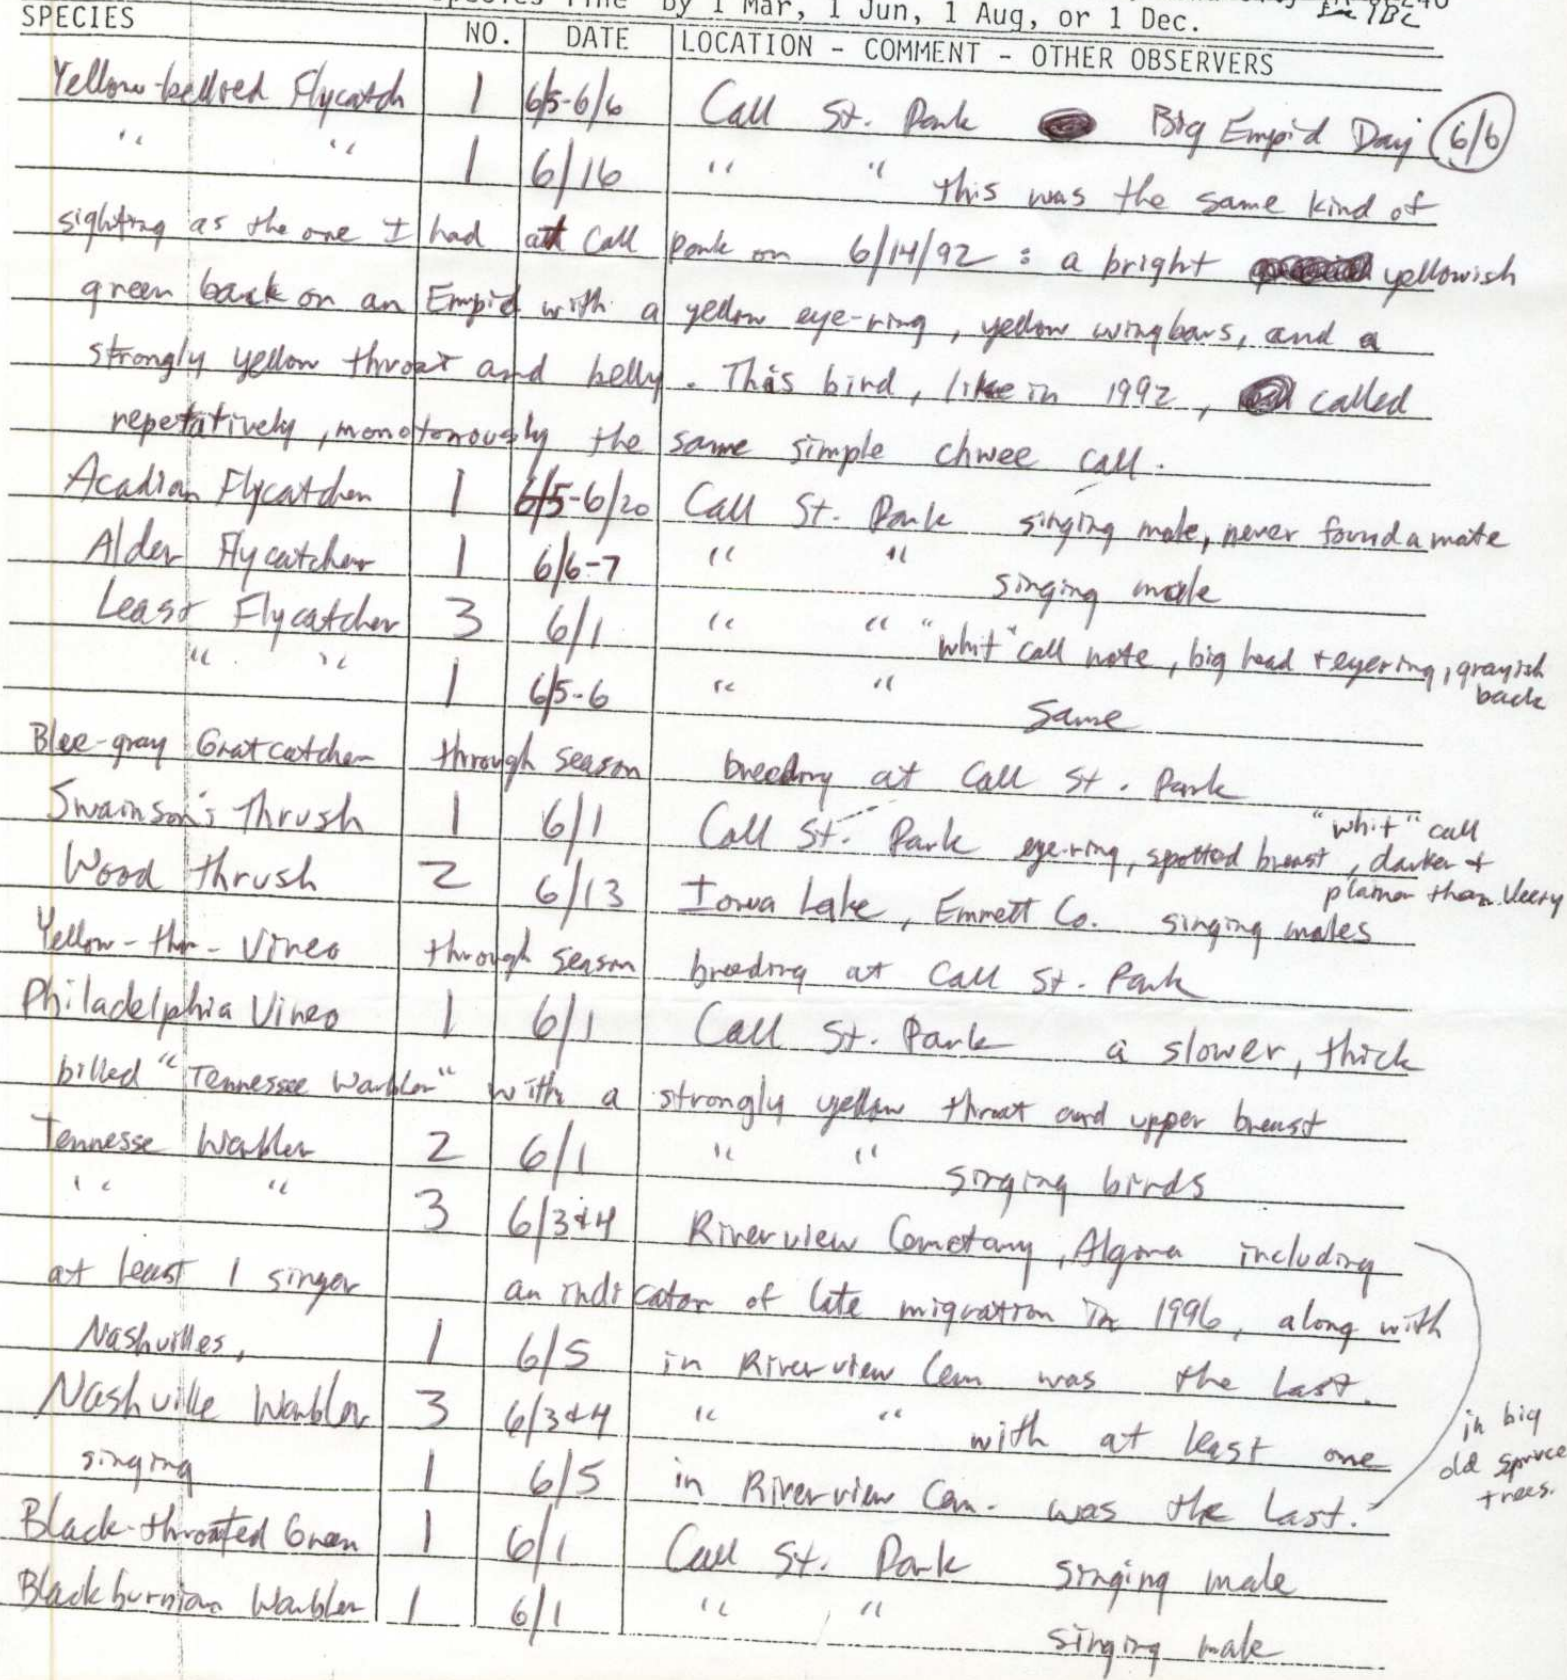 by 1 Mar, 1 Jun, 1 Aug, or 1 Dec.
SPECIES NO. DATE LOCATION - COMMENT - OTHER OBSERVERS
Yellow-bellied Flycatch 1 6/5-6/6 Call St. Park Big Empid Day 6/6
" " 1 6/16 " " this was the same kind of
sighting as the one I had at Call Park on 6/14/92 : a bright yellowish
green back on an Empid with a yellow eye-ring, yellow wingbars, and a
strongly yellow throat and belly. This bird, like in 1992, called
repetatively, monotonously the same simple chwee call.
Acadian Flycatcher 1 6/5-6/20 Call St. Park singing male, never found a mate
Alder Flycatcher 1 6/6-7 " " singing male
Least Flycatcher 3 6/1 " " "whit" call note, big head + eyering, grayish back
" " 1 6/5-6 " " Same
Blue-gray Gnatcatcher through season breeding at Call St. Park
Swainson's Thrush 1 6/1 Call St. Park eye-ring, spotted breast, "whit" call, darker + plainer than Veery
Wood thrush 2 6/13 Iowa Lake, Emmett Co. singing males
Yellow-thr- Vireo through season breeding at Call St. Park
Philadelphia Vireo 1 6/1 Call St. Park a slower, thick
billed "Tennessee Warbler" with a strongly yellow throat and upper breast
Tennesse Warbler 2 6/1 " " singing birds
" " 3 6/3+4 Riverview Cemetary, Algona including
at least 1 singer an indicator of late migration in 1996, along with
Nashvilles, 1 6/5 in Riverview Cem was the last.
Nashville Warbler 3 6/3+4 " " with at least one
singing 1 6/5 in Riverview Cem. was the last.
in big
old spruce
trees.
Black-throated Green 1 6/1 Call St. Park singing male
Blackburnian Warbler 1 6/1 " " singing male